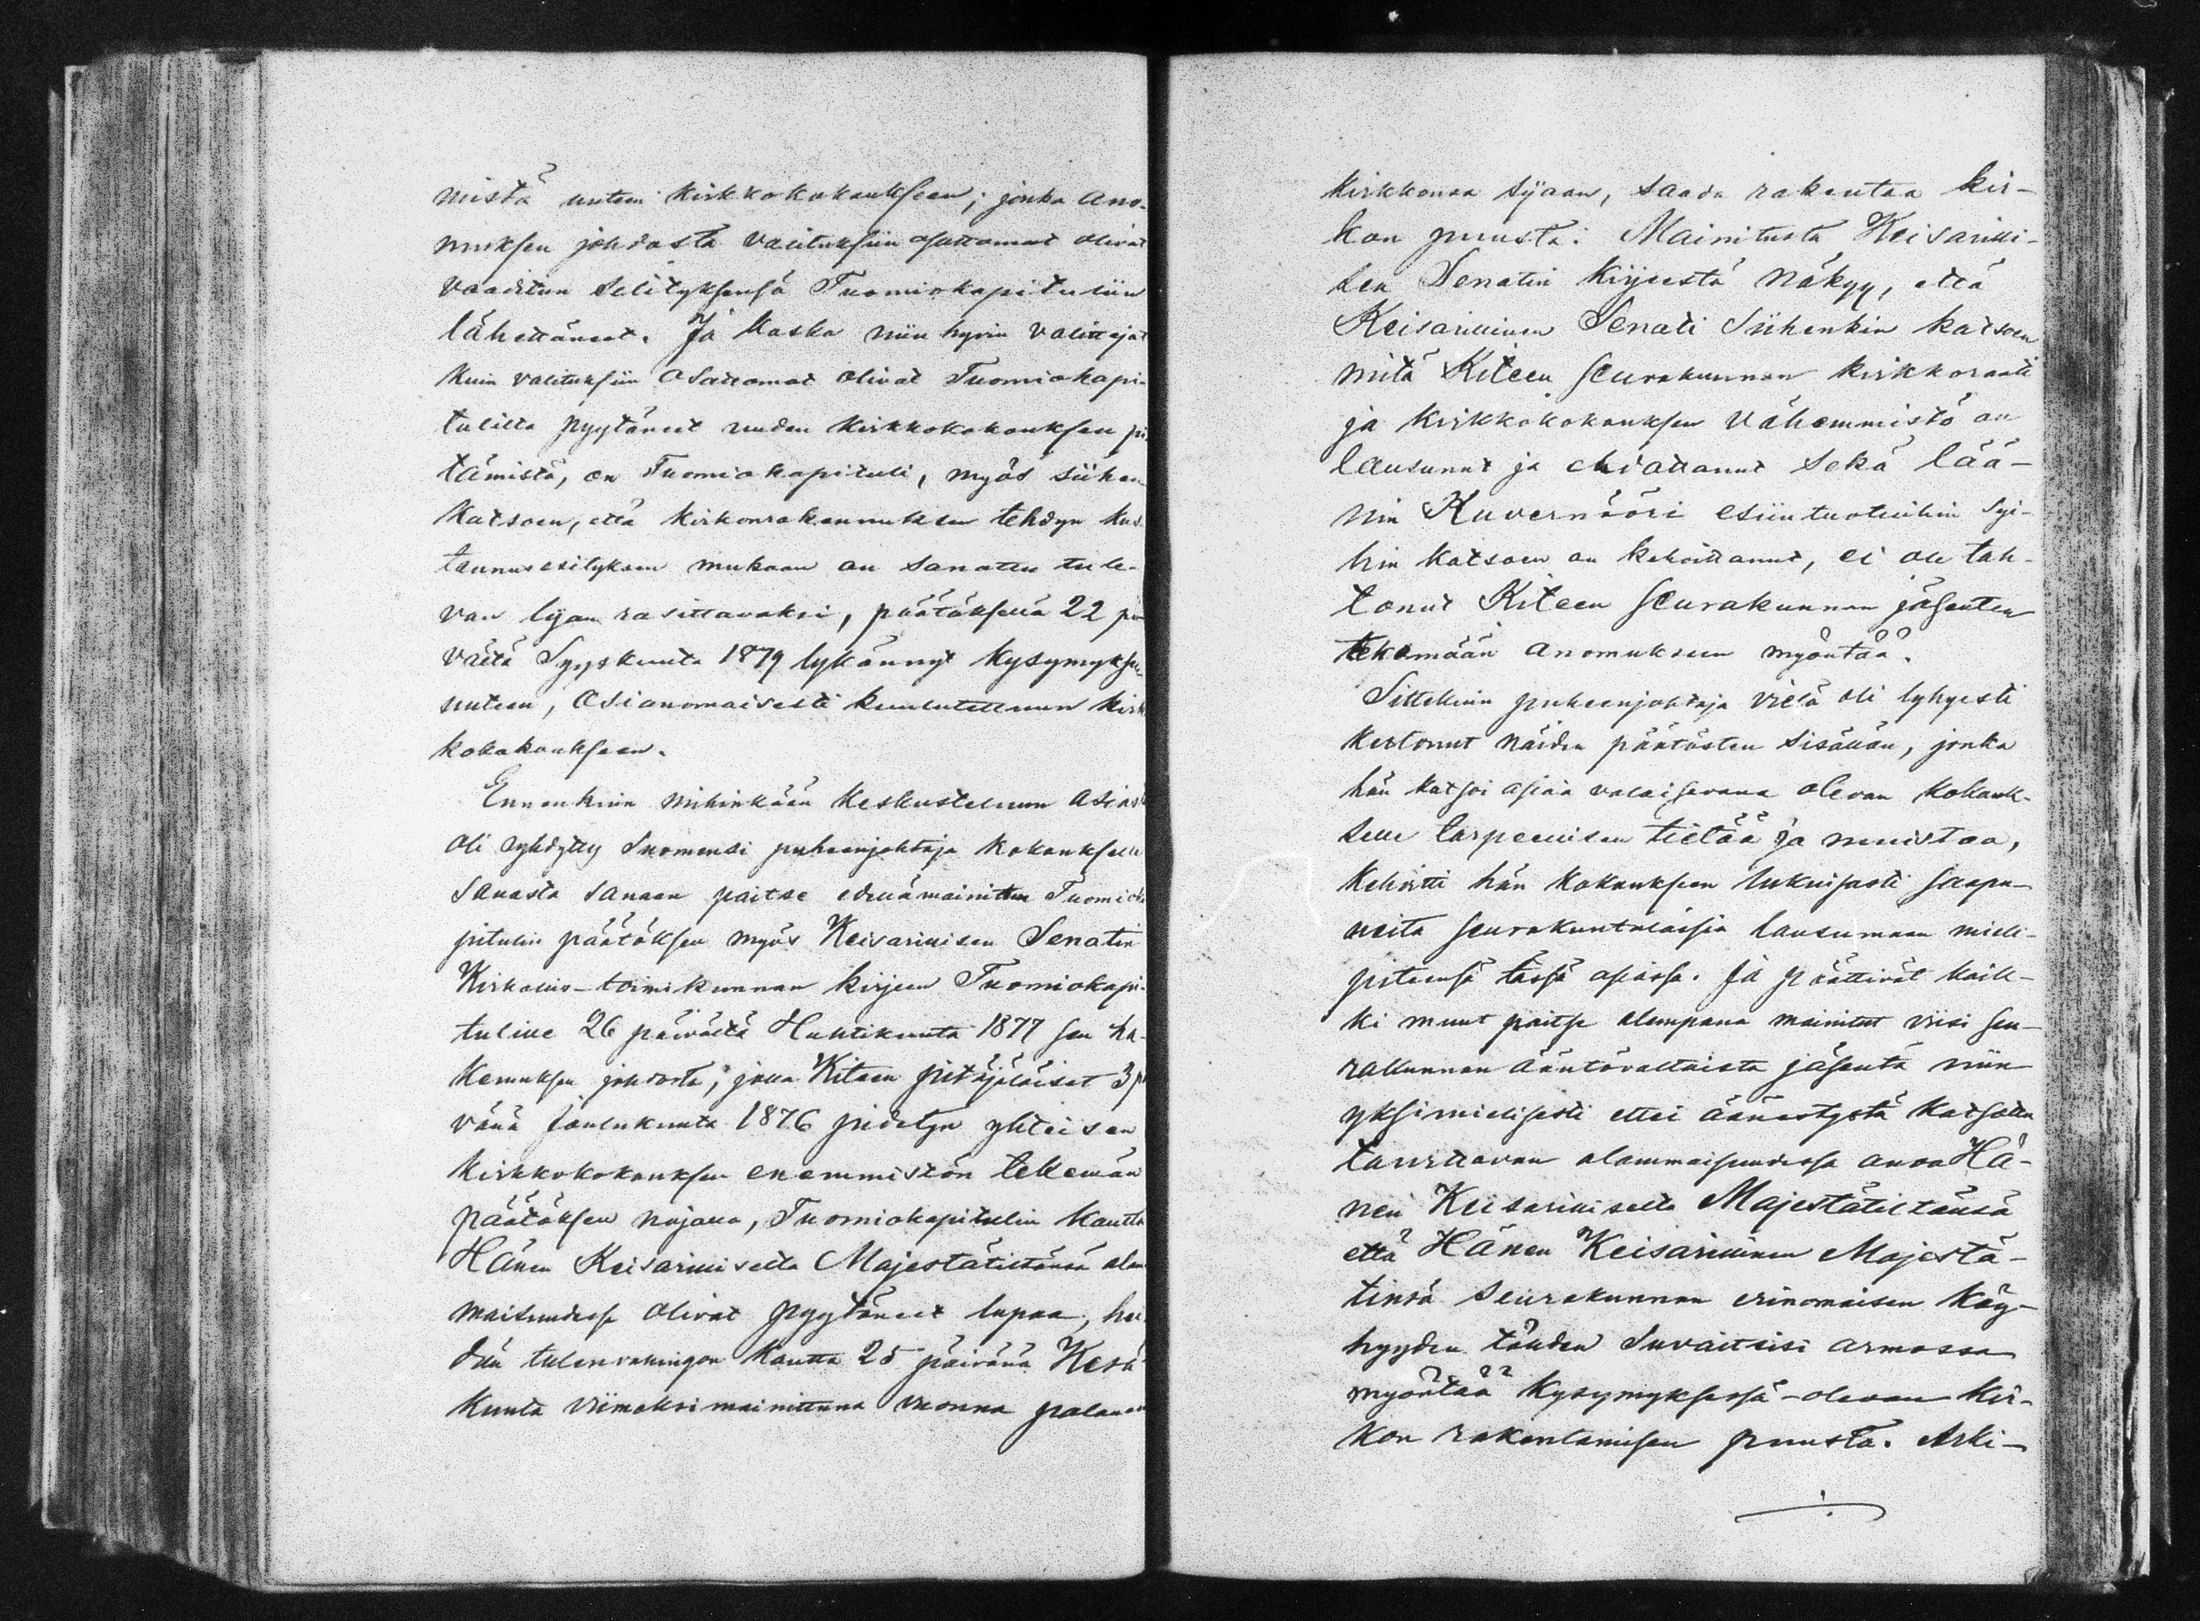 mistä uuteen kirkkokokoukseen; jonka ano-
muksen johdosta valituksiin osattomat olivat
vaaditun selityksensä Tuomiokapituliin
lähettäneet. Ja koska niin hyvin valittajat
kuin valituksiin osattomat olivat Tuomiokapi-
tulilta pyytäneet uuden kirkkokokouksen pi-
tämistä, on Tuomiokapituli, myös siihen
katsoen, että kirkonrakennuksen tehdyn kus-
tannusesityksen mukaan on sanottu tule-
van lijan rasittavaksi, päätöksellä 22 päi
vältä Syyskuuta 1879 lykännyt kysymyksen
uuteen, asianomaisesti kuulutettuun kirk
kokokoukseen.
Ennenkuin mihinkään keskusteluun asiast
oli ryhdytty Suomensi puheenjohtaja kokoukselle
sanasta sanaan paitse edellämainitun Tuomioka
pitulin päätöksen myös Keisarillisen Senatin
Kirkollis-toimikunnan kirjeen Tuomiokapi-
tulille 26 päivältä Huhtikuuta 1877 sen ha-
kemuksen johdosta, jolla Kiteen pitäjäläiset 3 p
vänä Joulukuuta 1876 pidetyn yhteisen
kirkkokokouksen enemmistön tekemän
päätöksen nojalla, Tuomiokapitulin kautta
Hänen Keisarilliselta Majestätiltänsä alam
maisuudessa olivat pyytäneet lupaa, hei
dän tulenvahingon kautta 25 päivänä Kesä
kuuta viimeksimainittuna vuonna palaneen
kirkkonsa sijaan, saada rakentaa kir-
kon puusta: Mainitusta Keisarilli-
sen Senatin kirjeestä näkyy, että
Keisarillinen Senati siihenkin katsoen
mitä Kiteen seurakunnan kirkkoraati
ja kirkkokokouksen vähemmistö on
lausunut ja ehdottanut sekä lää-
nin Kuvernööri esiintuotuihin syi-
hin katsoen on kehoittanut, ei ole tah-
tonut Kiteen seurakunnan jäsenten
tekemään anomukseen myöntää.
Sittekuin puheenjohtaja vielä oli lyhyesti
kertonut näiden päätösten sisällön, jonka
hän katsoi asiaa valaisevana olevan kokouk-
selle tarpeellisen tietää ja muistaa,
kehoitti hän kokouksen lukuisasti saapu-
neita seurakuntalaisia lausumaan mieli-
piteensä tässä asiassa. Ja päättivät kaik-
ki muut paitse alempana mainitut viisi seu-
rakunnan ääntövaltaista jäsentä niin
yksimielisesti ettei äänestystä katsottu
tarvittavan alammaisuudessa anoa Hä-
nen Keisarilliselta Majestätiltänsä
että Hänen Keisarillinen Majestä-
tinsä seurakunnan erinomaisen köy-
hyyden tähden suvaitsisi armossa
myöntää kysymyksessä-olevan kir-
kon rakentamisen puusta. Arki-